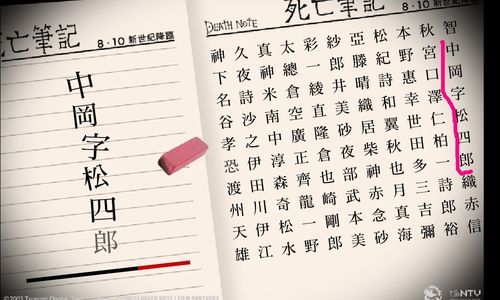 亡筆記
8·10 新世紀降臨
中岡字松四郎
DEATH NOTE
死亡筆記
8·10 新世紀降臨
智中岡字松四郎織赤信
秋宮口澤仁柏一詩郎裕
本野惠幸世田多三吉彌
松紀詩和翼秋也月真海
亞藤晴織居柴神赤念砂
紗郎井美砂夜部武本美
彩一綾直隆倉也崎剛郎
太總倉空廣正齊龍一野
真神米南中淳森奇松水
久夜詩沙之伊田川伊江
神下名谷孝恐渡州天雄
NTV